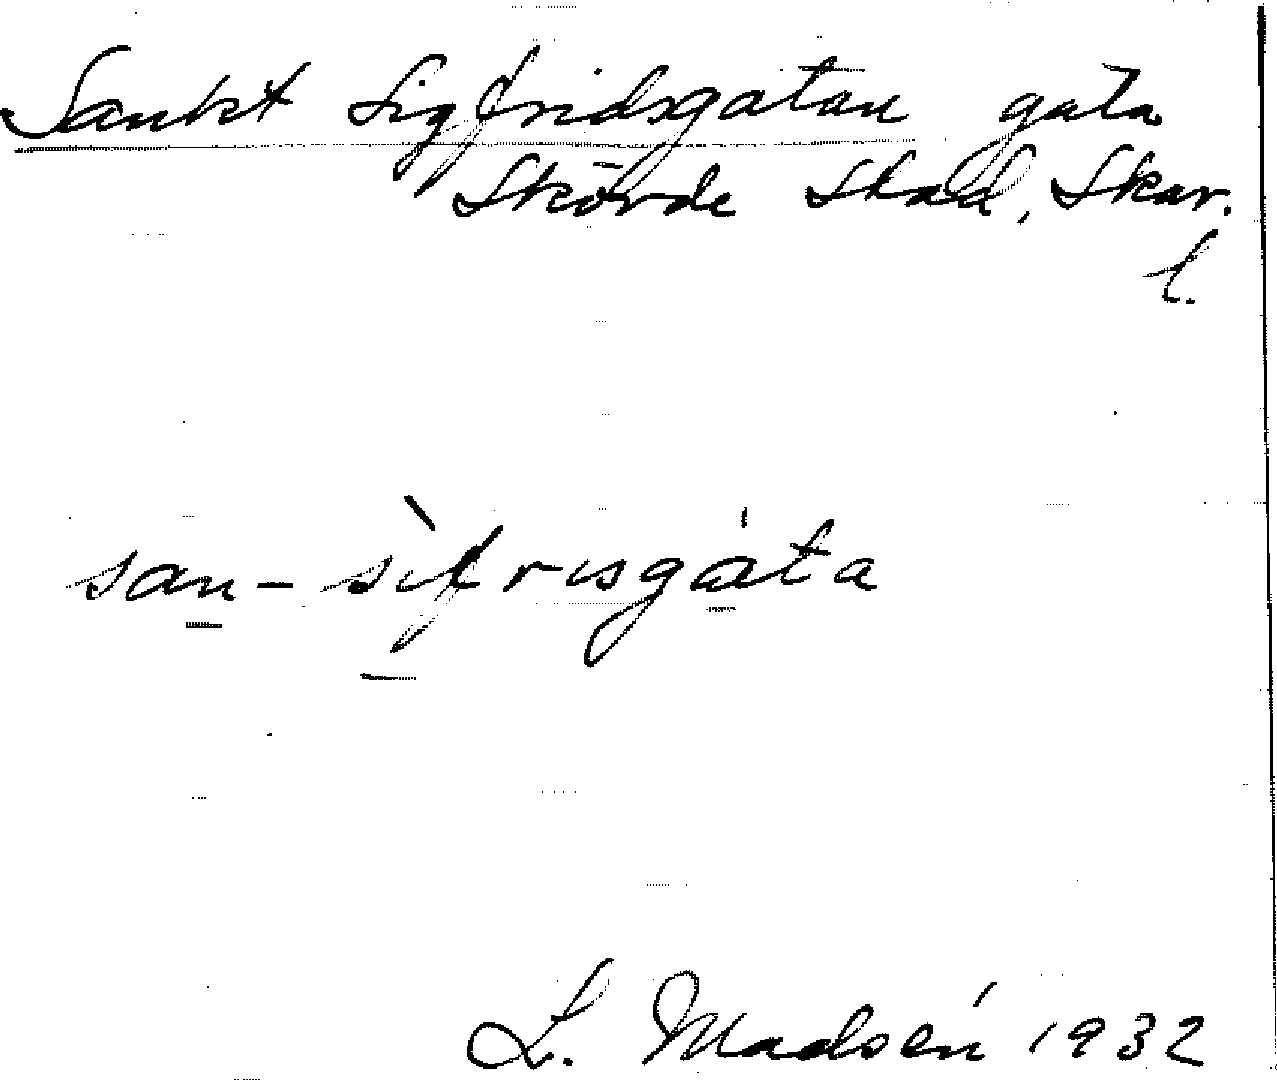 Sankt Sigfridsgatan gata
Skövde stad, Skar.
l.
san-sìfrisgáta
L. Madsén 1932